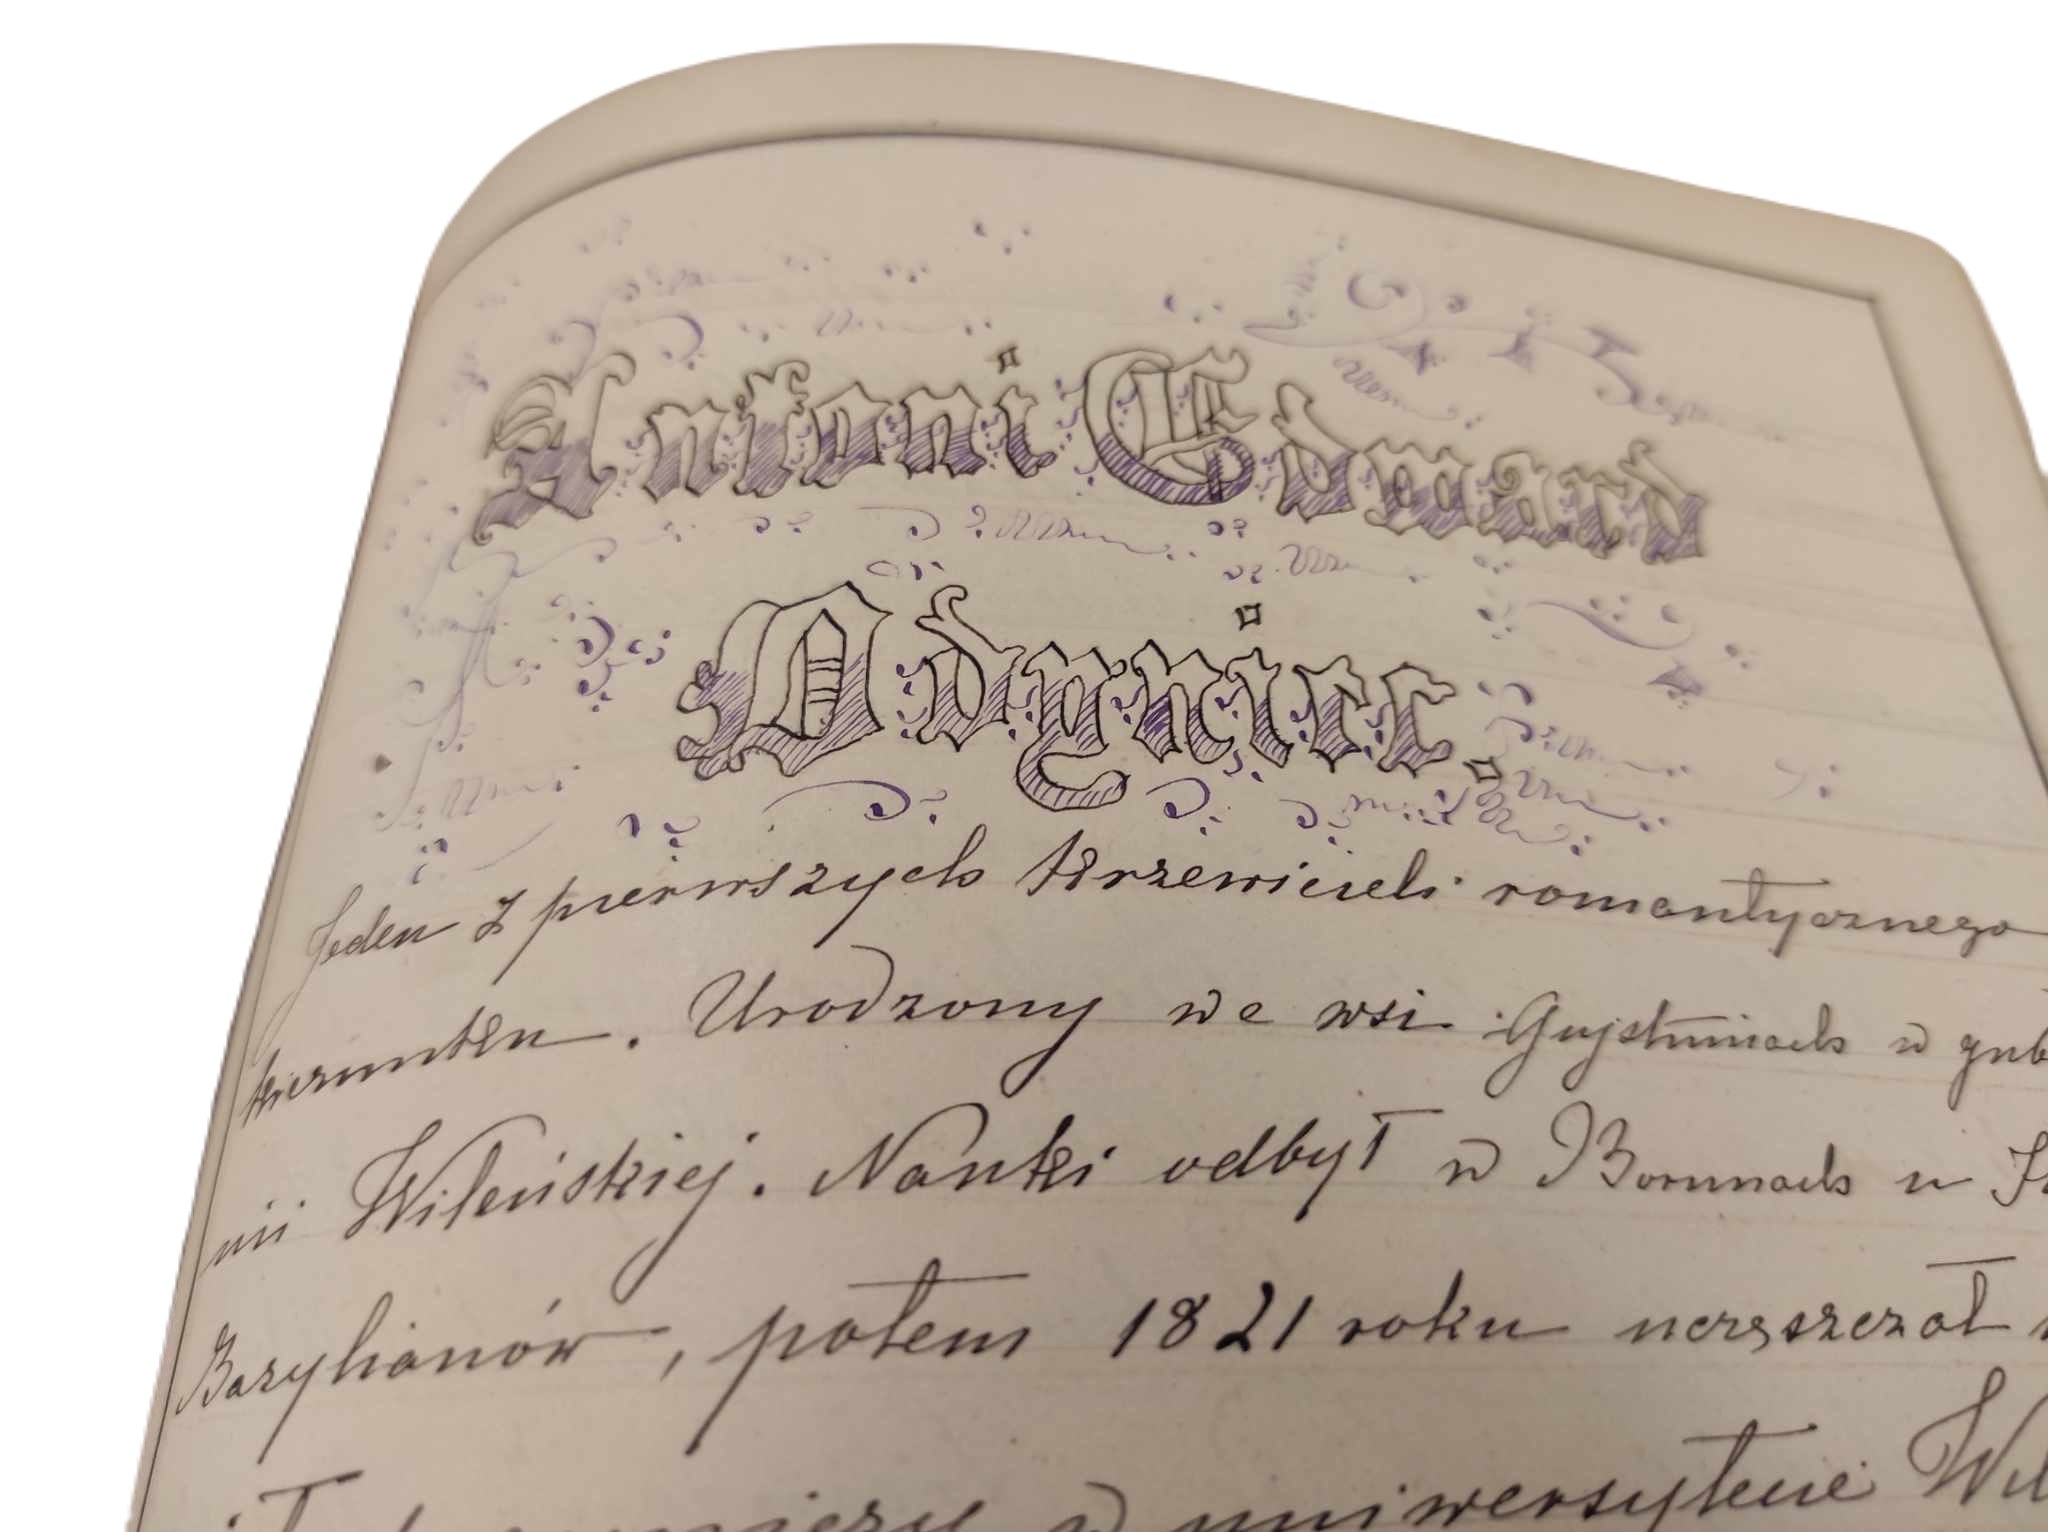 Antoni Edward
Odyniec.
Jeden z pierwszych krzewicieli romantycznego
kierunku. Urodzony we wsi Gujstuniach w gub
nii Wileńskiej. Nauki odbył w Borunach u
Bazylianów, potem 1821 roku uczęszczał
uniwersytecie Wil